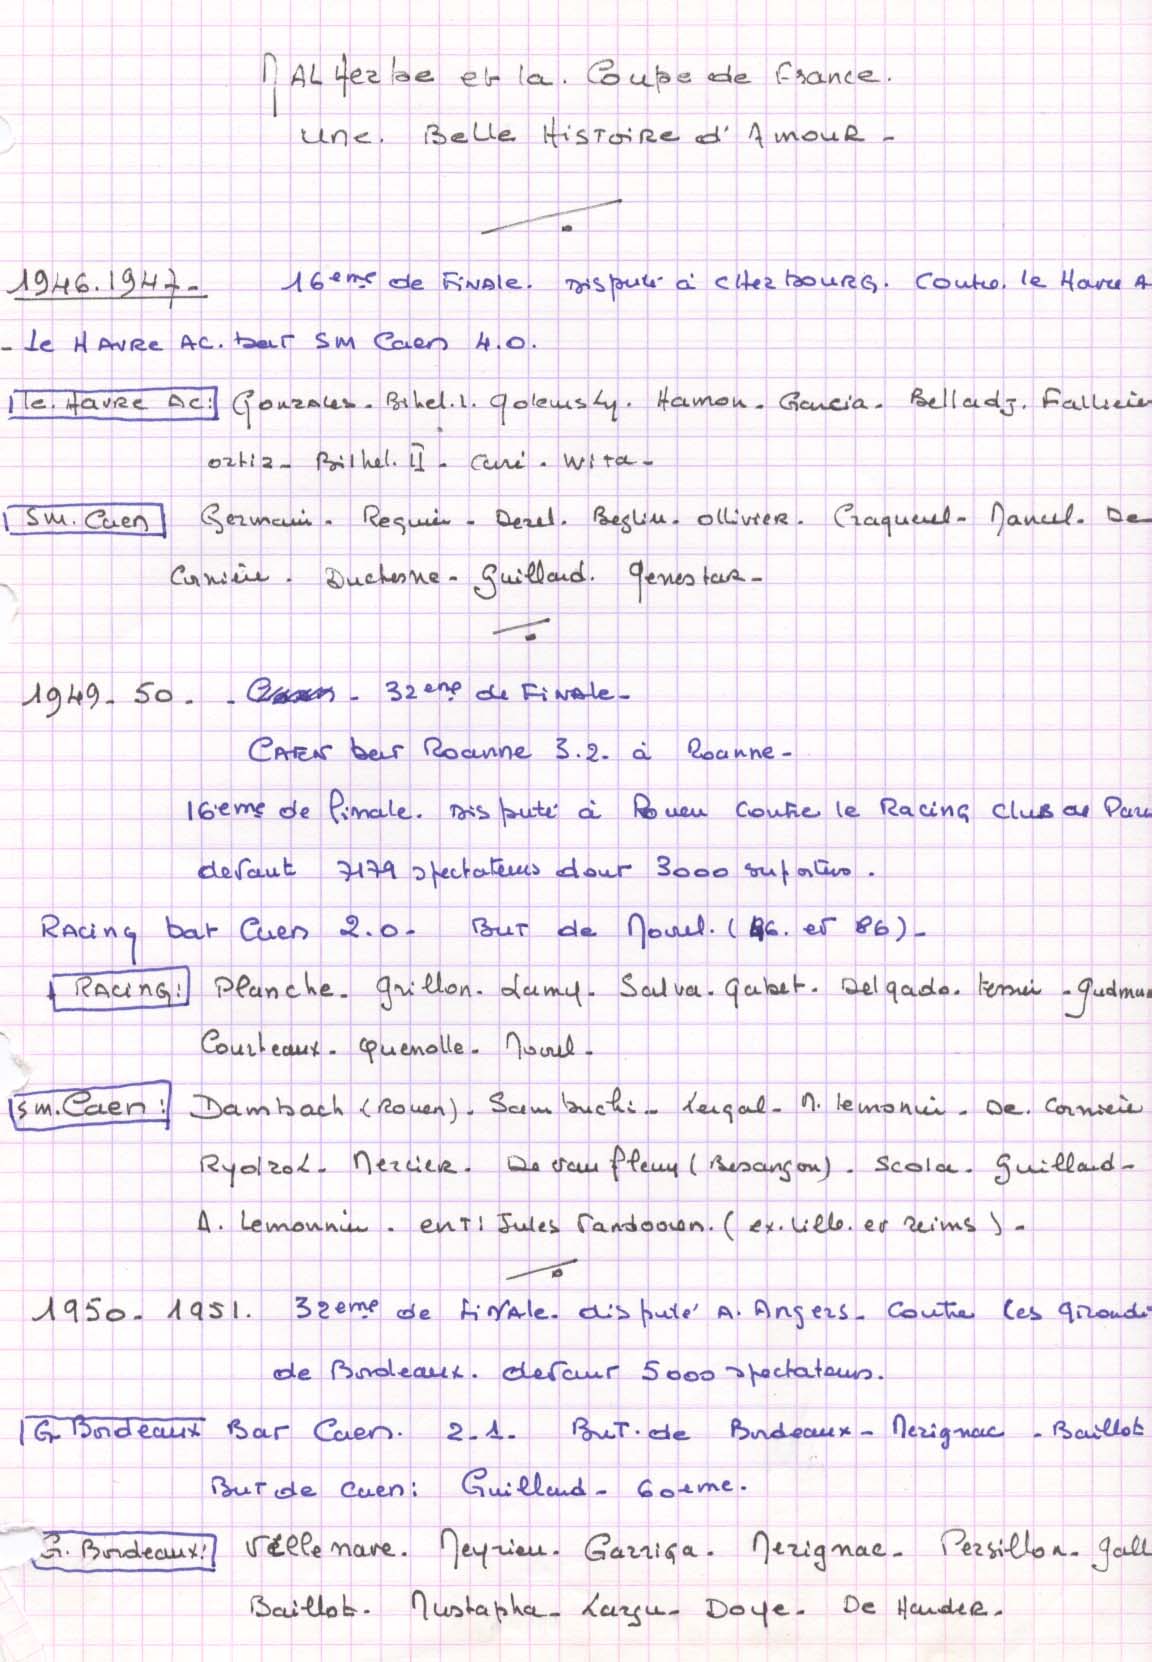 MALHerbe et la. Coupe de France.
une. Belle HISTOIRE d'AMOUR -
1946.1947- 16eme de FiNAle. Disputé à CHerbOURG. Contre. le Havre A
- Le HAVRE AC. bat SM Caen 4.0.
le. HAVRE AC: Gonzales - Bihel. I. Golewsky. Hamon - Garcia - Belladj. Fallicier
ortiz - Bihel. II - Curé . Wita -
SM. Caen Germain - Requier - Dezel. Beglin - OlliviER. Craquenel - Mancel. De
Cornière . Duchesne - Guillard. GenestaR -
1949 - 50. - 32eme de FiNAle -
CAEN bat Roanne 3.2. à Roanne -
16eme de finale. Disputé à Rouen Contre le Racing Club de Par
devant 7179 spectateurs dont 3000 suporters.
RAcing bat Caen 2.0 - BuT de Morel. (46. et 86) -
RAcinG: Planche - Grillon - Lamy - Salva - Gabet . Delgado. - Gudmun
Courteaux - Quenolle - Morel -
SM. Caen: Dambach (Rouen) - Sambuchi - Lergal - M. Lemonnier - De. Cornière
Rydzok - MercieR - De Vaufleury (Besançon) . Scola - Guillard -
A. Lemonnier . enT: Jules Vandooren. (ex. Lille. et Reims) -
1950 - 1951. 32eme de FiNAle - disputé A. Angers - Contre les Girondi
de Bordeaux. devant 5000 spectateurs.
G. Bordeaux Bat Caen. 2-1. BuT. de Bordeaux - Merignac - Baillot
BuT de Caen: Guillard - 60eme.
G. Bordeaux: Villenave. Meyrieu - Garriga . Merignac - Persillon - Gall
Baillot - Mustapha - Kargu - Doye - De HardeR -